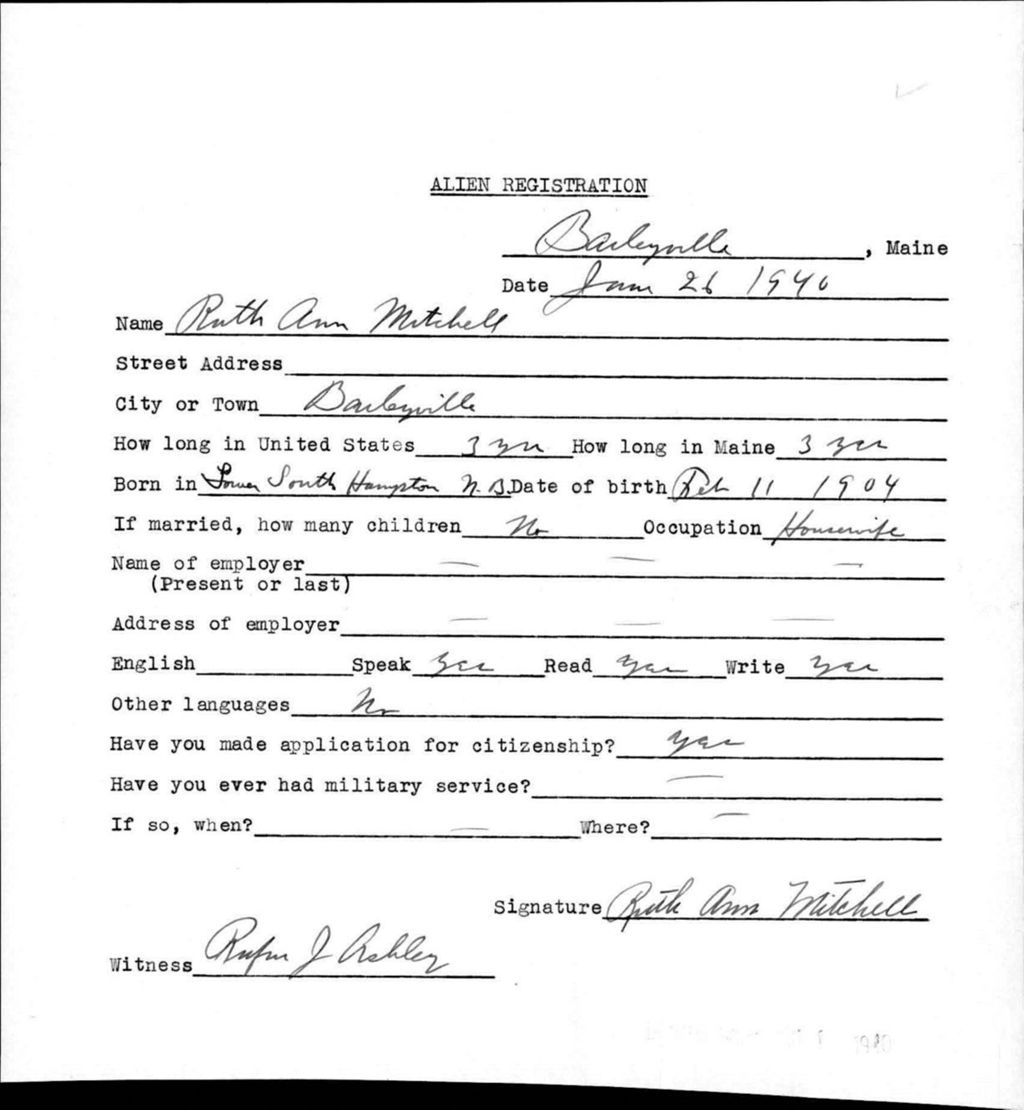 ALIEN REGISTRATION
Baileyville, Maine
Date June 26 1940
Name Ruth Ann Mitchell
Street Address
City or Town Baileyville
How long in United States 3 yrs How long in Maine 3 yrs
Born in Lower South Hampton N.B. Date of birth Feb 11 1904
If married, how many children No Occupation Housewife
Name of employer — — —
(Present or last)
Address of employer — — —
English Speak Yes Read Yes Write Yes
Other languages No
Have you made application for citizenship? Yes
Have you ever had military service? —
If so, when? — Where? —
Signature Ruth Ann Mitchell
Witness Rufus J Ashley
1940